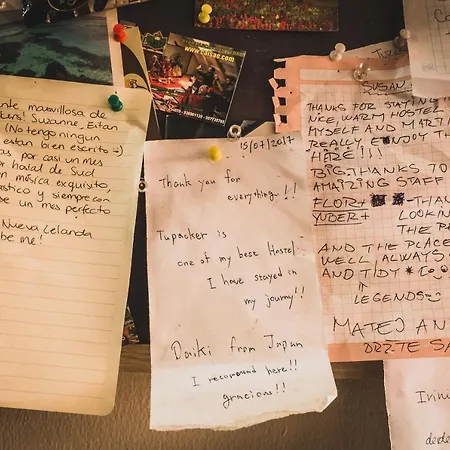 nte maravillosa de
Suzanne, Eitan
(No tengo ningun
estan bien escrito
as, por casi un mes
hostal de Sud
n música exquisito,
stico y siempre con
se un mes perfecto
Nueva Zelanda
be me!
www.caisae.com
15/07/2017
Thank you for
everything!!
Tupacker is
one of my best Hostel
I have stayed in
my journey!!
Daiki from Japan
I recommend here!!
gracious!!
SUSAN
THANKS FOR STAYING
NICE, WARM HOSTEL
MYSELF AND MARTI
REALLY ENJOY T
HERE!!!
BIG THANKS TO
AMAIZING STAFF
FLOR+
YUBER+
-THAN
LOOKIN
THE P
AND THE PLACE
WELL, ALWAYS
AND TIDY
=
LEGENDS
MATEJ AN
DRŽTE SA
Irin
dede